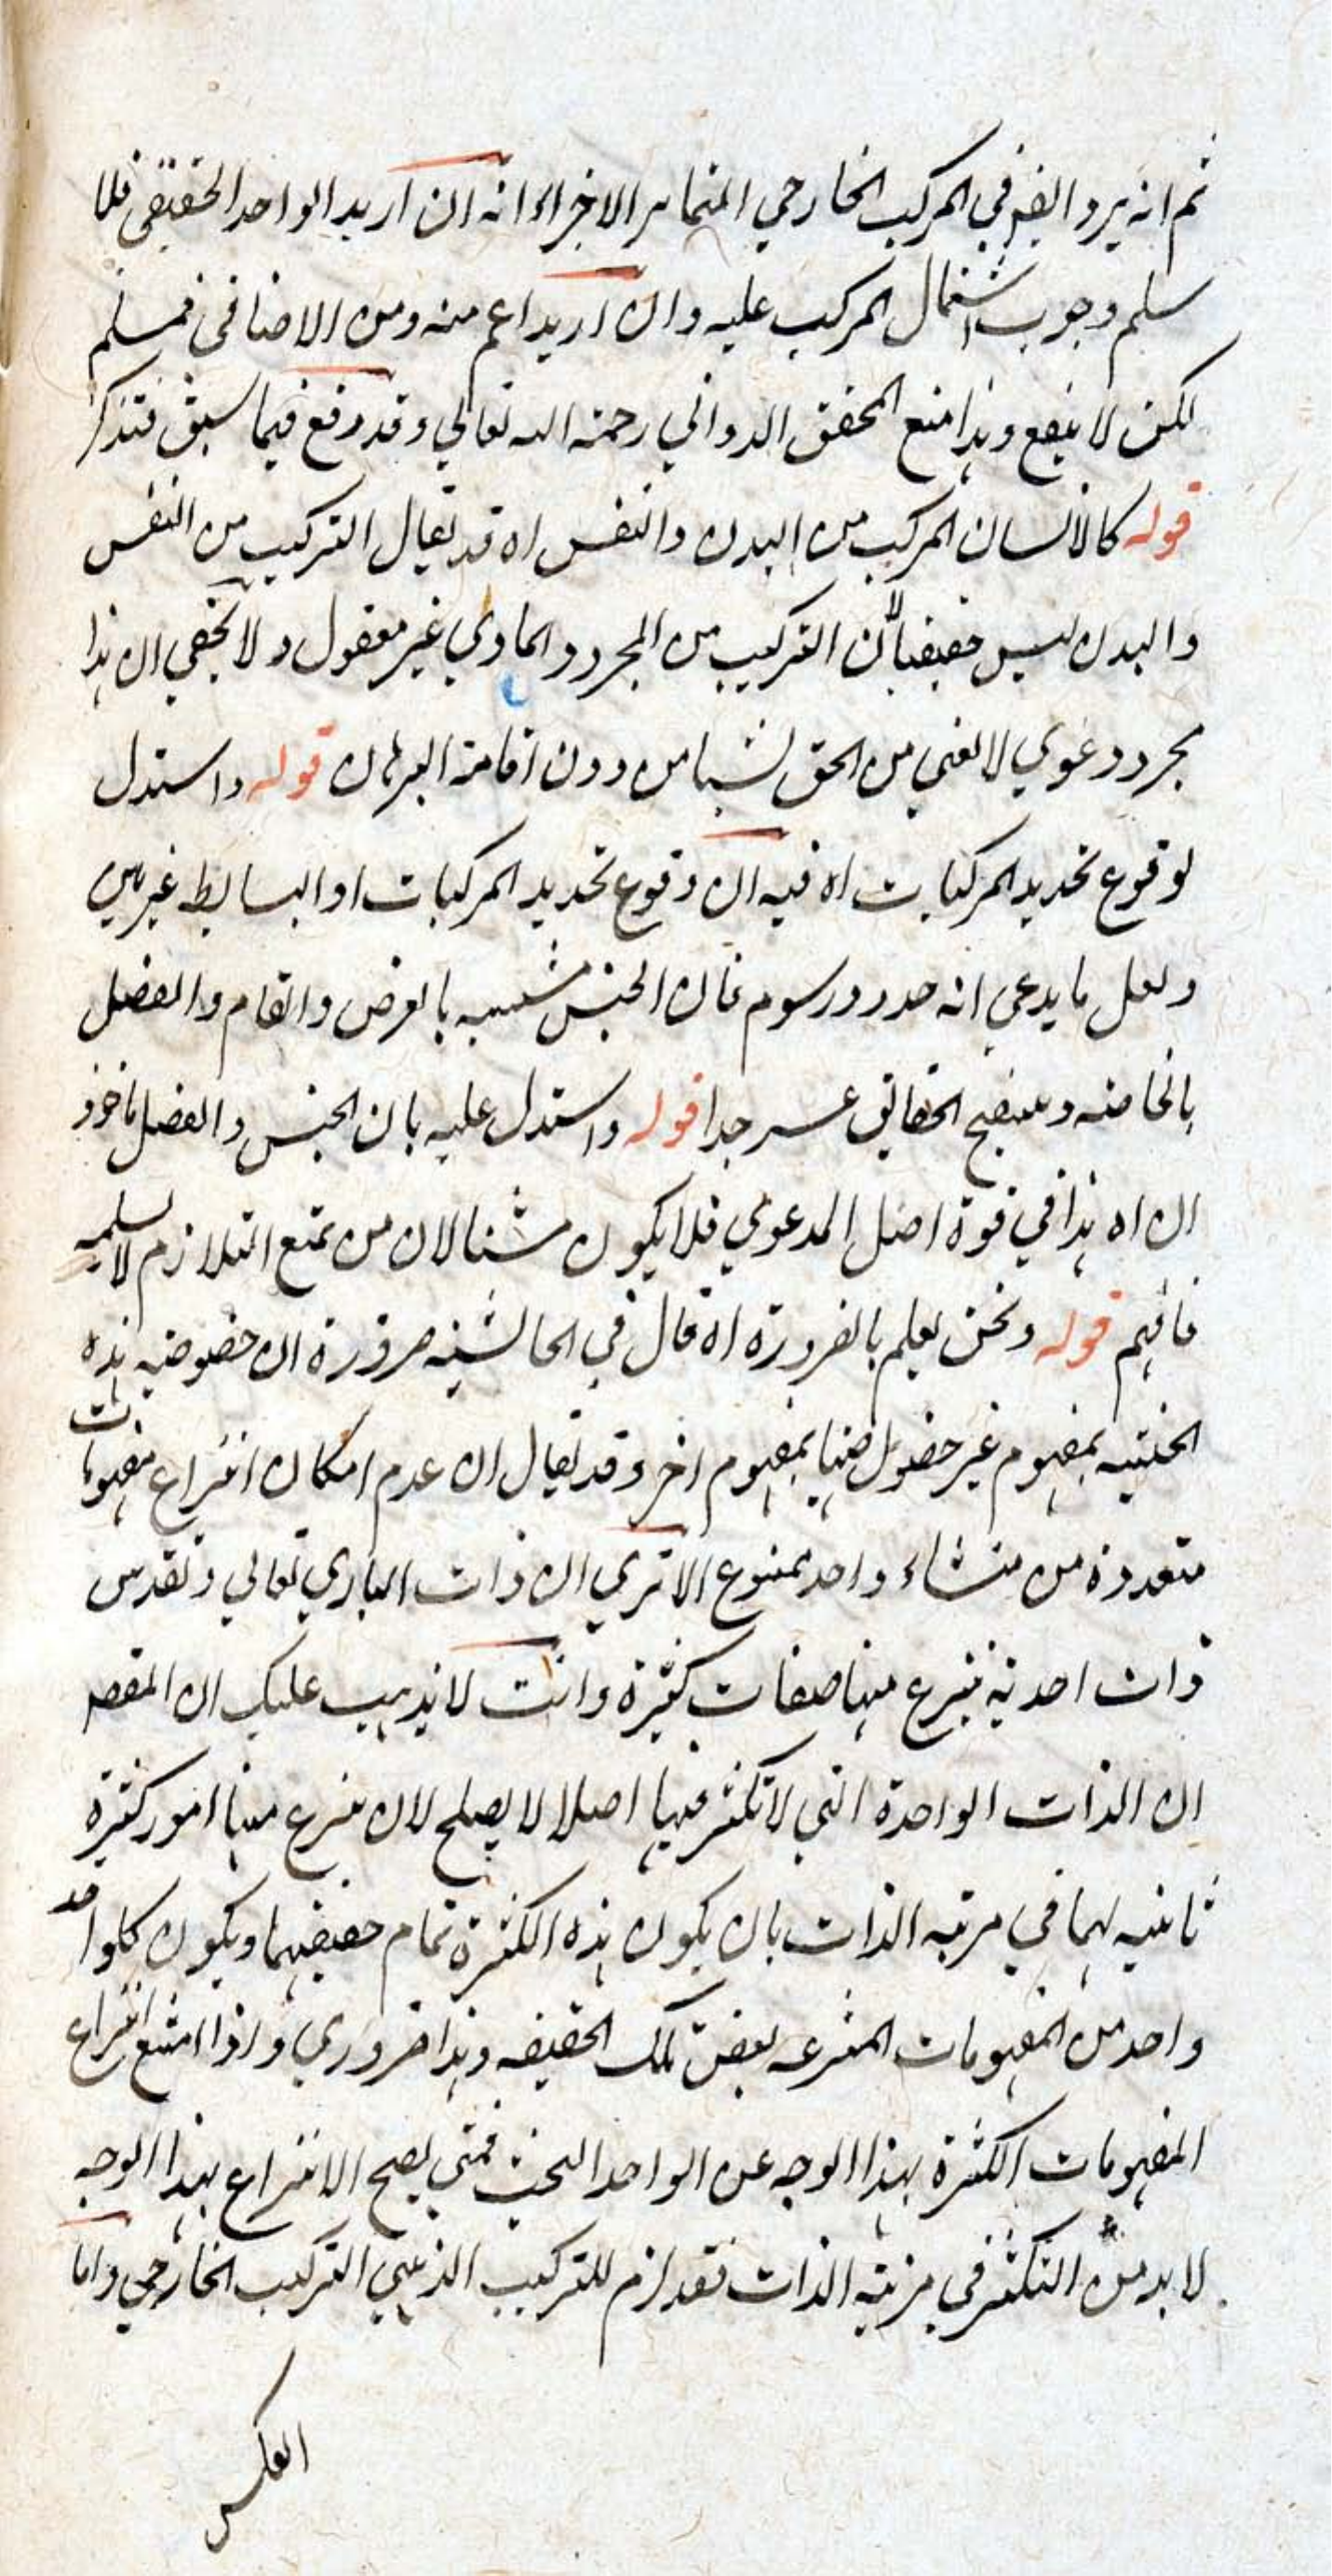 ثم انه يرد ايضا في المركب الخارجي المتمايز الاجزاء انه ان اريد الواحد الحقيقي فلا
سلم وجوب اشتمال المركب عليه وان اريد اعم منه ومن الاضافي فمسلم
لكن لا ينفع وهذا منع المحقق الدواني رحمة الله تعالي وقد دفع فيما سبق فتذكر
قوله كالانسان المركب من البدن والنفس اه قد يقال التركيب من النفس
والبدن ليس حقيقيا لان التركيب من المجرد والمادي غير معقول ولا يخفي ان هذا
مجرد دعوي لا تغني من الحق شيئا من دون اقامة البرهان قوله واستدل
لوقوع تحديد المركبات اه فيه ان وقوع تحديد المركبات او البسايط غير بين
ولعل ما يدعي انه حدود رسوم فان الجنس مشتبه بالعرض العام والفصل
بالخاصة وتنقيح الحقايق عسر جدا قوله واستدل عليه بان الجنس والفصل ماخوذ
ان اه هذا في قوة اصل الدعوي فلا يكون مثبتا لان من يمنع التلازم لا يسلمه
فافهم قوله ونحن نعلم بالضرورة اه قال في الحاشية ضرورة ان خصوصية هذه
الحيثية بمفهوم غير خصوصيتها بمفهوم اخر وقد يقال ان عدم امكان انتزاع مفهومات
متعددة من منشاء واحد ممنوع الا تري ان ذات الباري تعالي وتقدس
ذات احدية ينتزع منها صفات كثيرة وانت لا يذهب عليك ان المقصود
ان الذات الواحدة التي لا تكثر فيها اصلا لا يصلح لان ينتزع منها امور كثيرة
ثابتة لها في مرتبة الذات بان يكون هذه الكثرة تمام حقيقتها ويكون كل واحد
واحد من المفهومات المنتزعه بعض تلك الحقيقه وهذا ضروري واذا امتنع انتزاع
المفهومات الكثيرة بهذا الوجه عن الواحد البحت فمتي يصح الانتزاع بهذا الوجه
لا بد من التكثر في مرتبة الذات فقد لزم للتركيب الذهني التركيب الخارجي واما
العكس